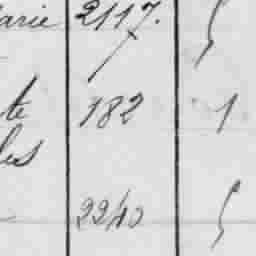 arie 2117.
te 182 1
les
2240